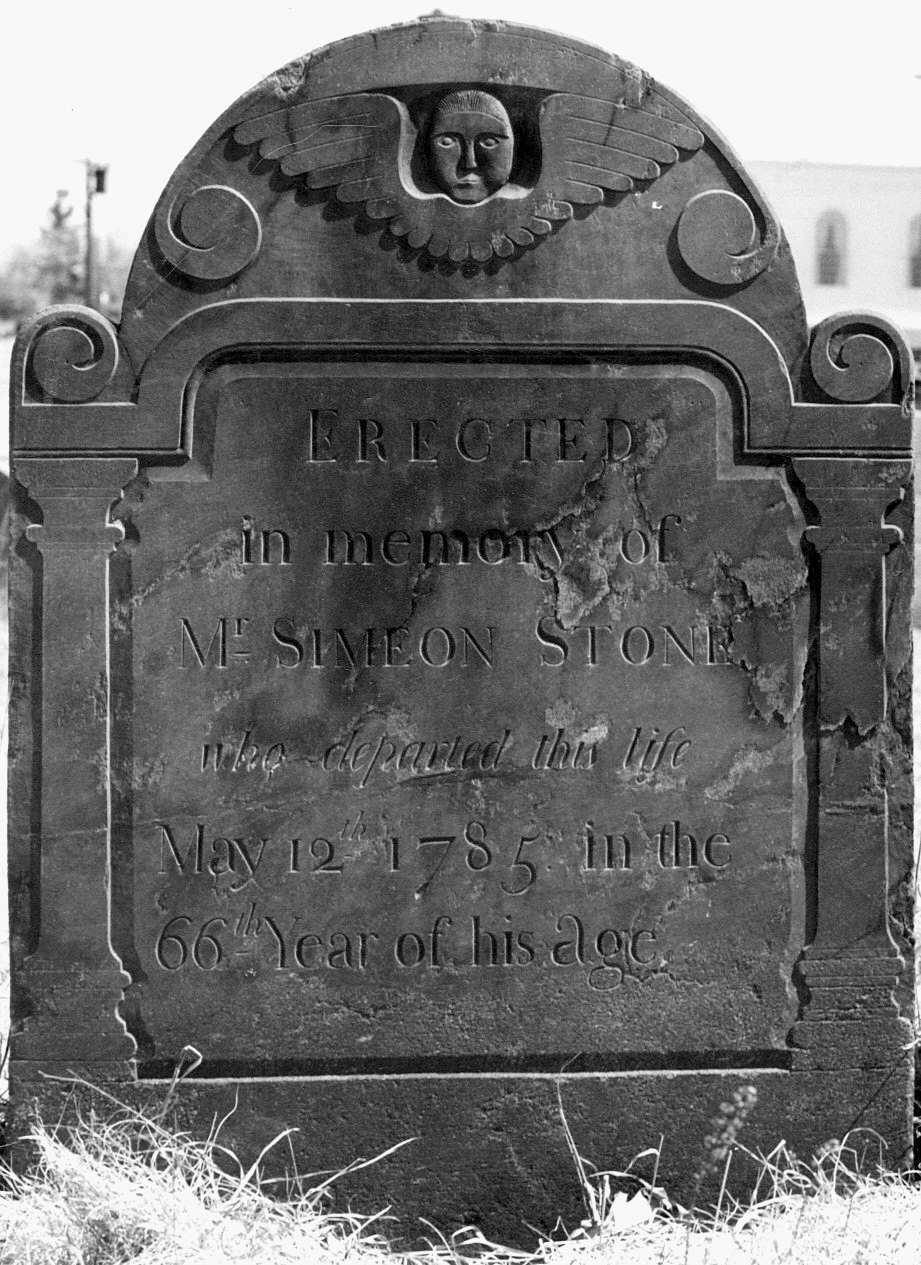 ERECTED
in memory of
Mr. SIMEON STONE
who departed this life
May 12th 1785 in the
66th Year of his age